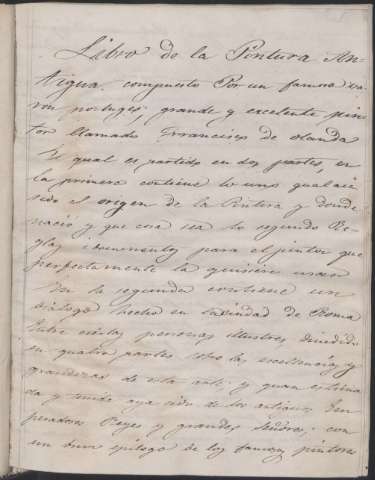 Libro de la Pintura An-
tigua. compuesto Por un famoso va-
ron portuges, grande y excelente pin-
tor llamado Francisco de olanda
El qual es partido en dos partes, en
la primera contiene lo uno qual aie
sido el origen de la Pintura y donde
nacio y que cosa sea lo segundo Re-
glas documentos para el pintor que
perfectamente la quisiere usar
En la segunda contiene un
dialogo hecho en la ciudad de Roma
entre ciertas personas illustres dividido
en quatro partes sobre las excellencias y
grandezas de esta arte, y quan estima
da y tenida aya sido de los antiguos Em
peradores Reyes y grandes Señores; con
un breve epilogo de los famosos pintores